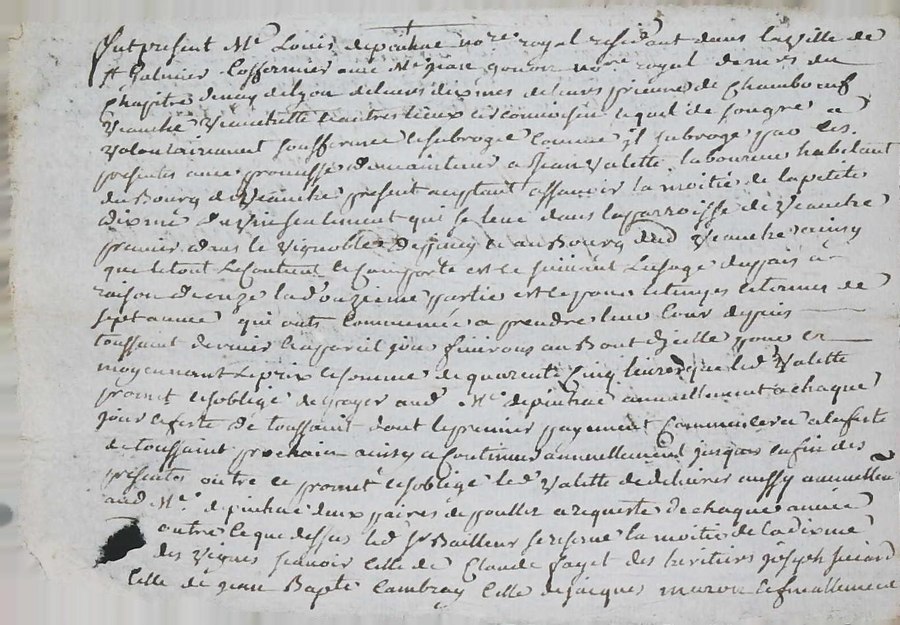 Fut present Me Louis depinhac nore royal residant dans la ville de
st Galmier Coffermier avec Me jean nore royal de mrs du
Chapitre d'enay de lyon de leurs dixmes de leurs prieuré de Chambœuf
Veauche Veauchette et autres lieux circonvoisin lequel de son gré a
volontairement soufferme et subrogé comme jl subroge par les
presentes avec promesse de maintenir a Jean Valette laboureur habitant
du Bourg de Veauche present acceptant assavoir la moitié de la petite
dixme du vin seulement qui se leve dans la parroisse de Veauche
dans le Vignoble et au Bourg dud Veauche ainsy
que le tout se contient et comporte et le suivant lusage du pais a
raison de onze la douzieme partie et ce pour le temps et terme de
sept année qui onts commencée a prendre leur cour depuis
toussaint dernier et a pareil jour finirons au Bout djcelle pour et
moyennant le prix et somme de quarente cinq livres que led Valette
promet et soblige de payer aud Me depinhac annuellement a chaque
jour et feste de toussaint dont le premier payement commencera a la feste
de toussaint prochain ainsy a continuer annuellement jusques en fin des
presentes outre ce promet et soblige led Valette de delivrer aussy annuellem
aud Me depinhac deux paires de poullet a requeste de chaque année
outre ce que dessus led sr Bailleur se reserve la moitié de la dixme
des Vignes scavoir celle de Claude fayet des heritiers joseph
Celle de jean Bapte Cambray Celle de jacques et finallement